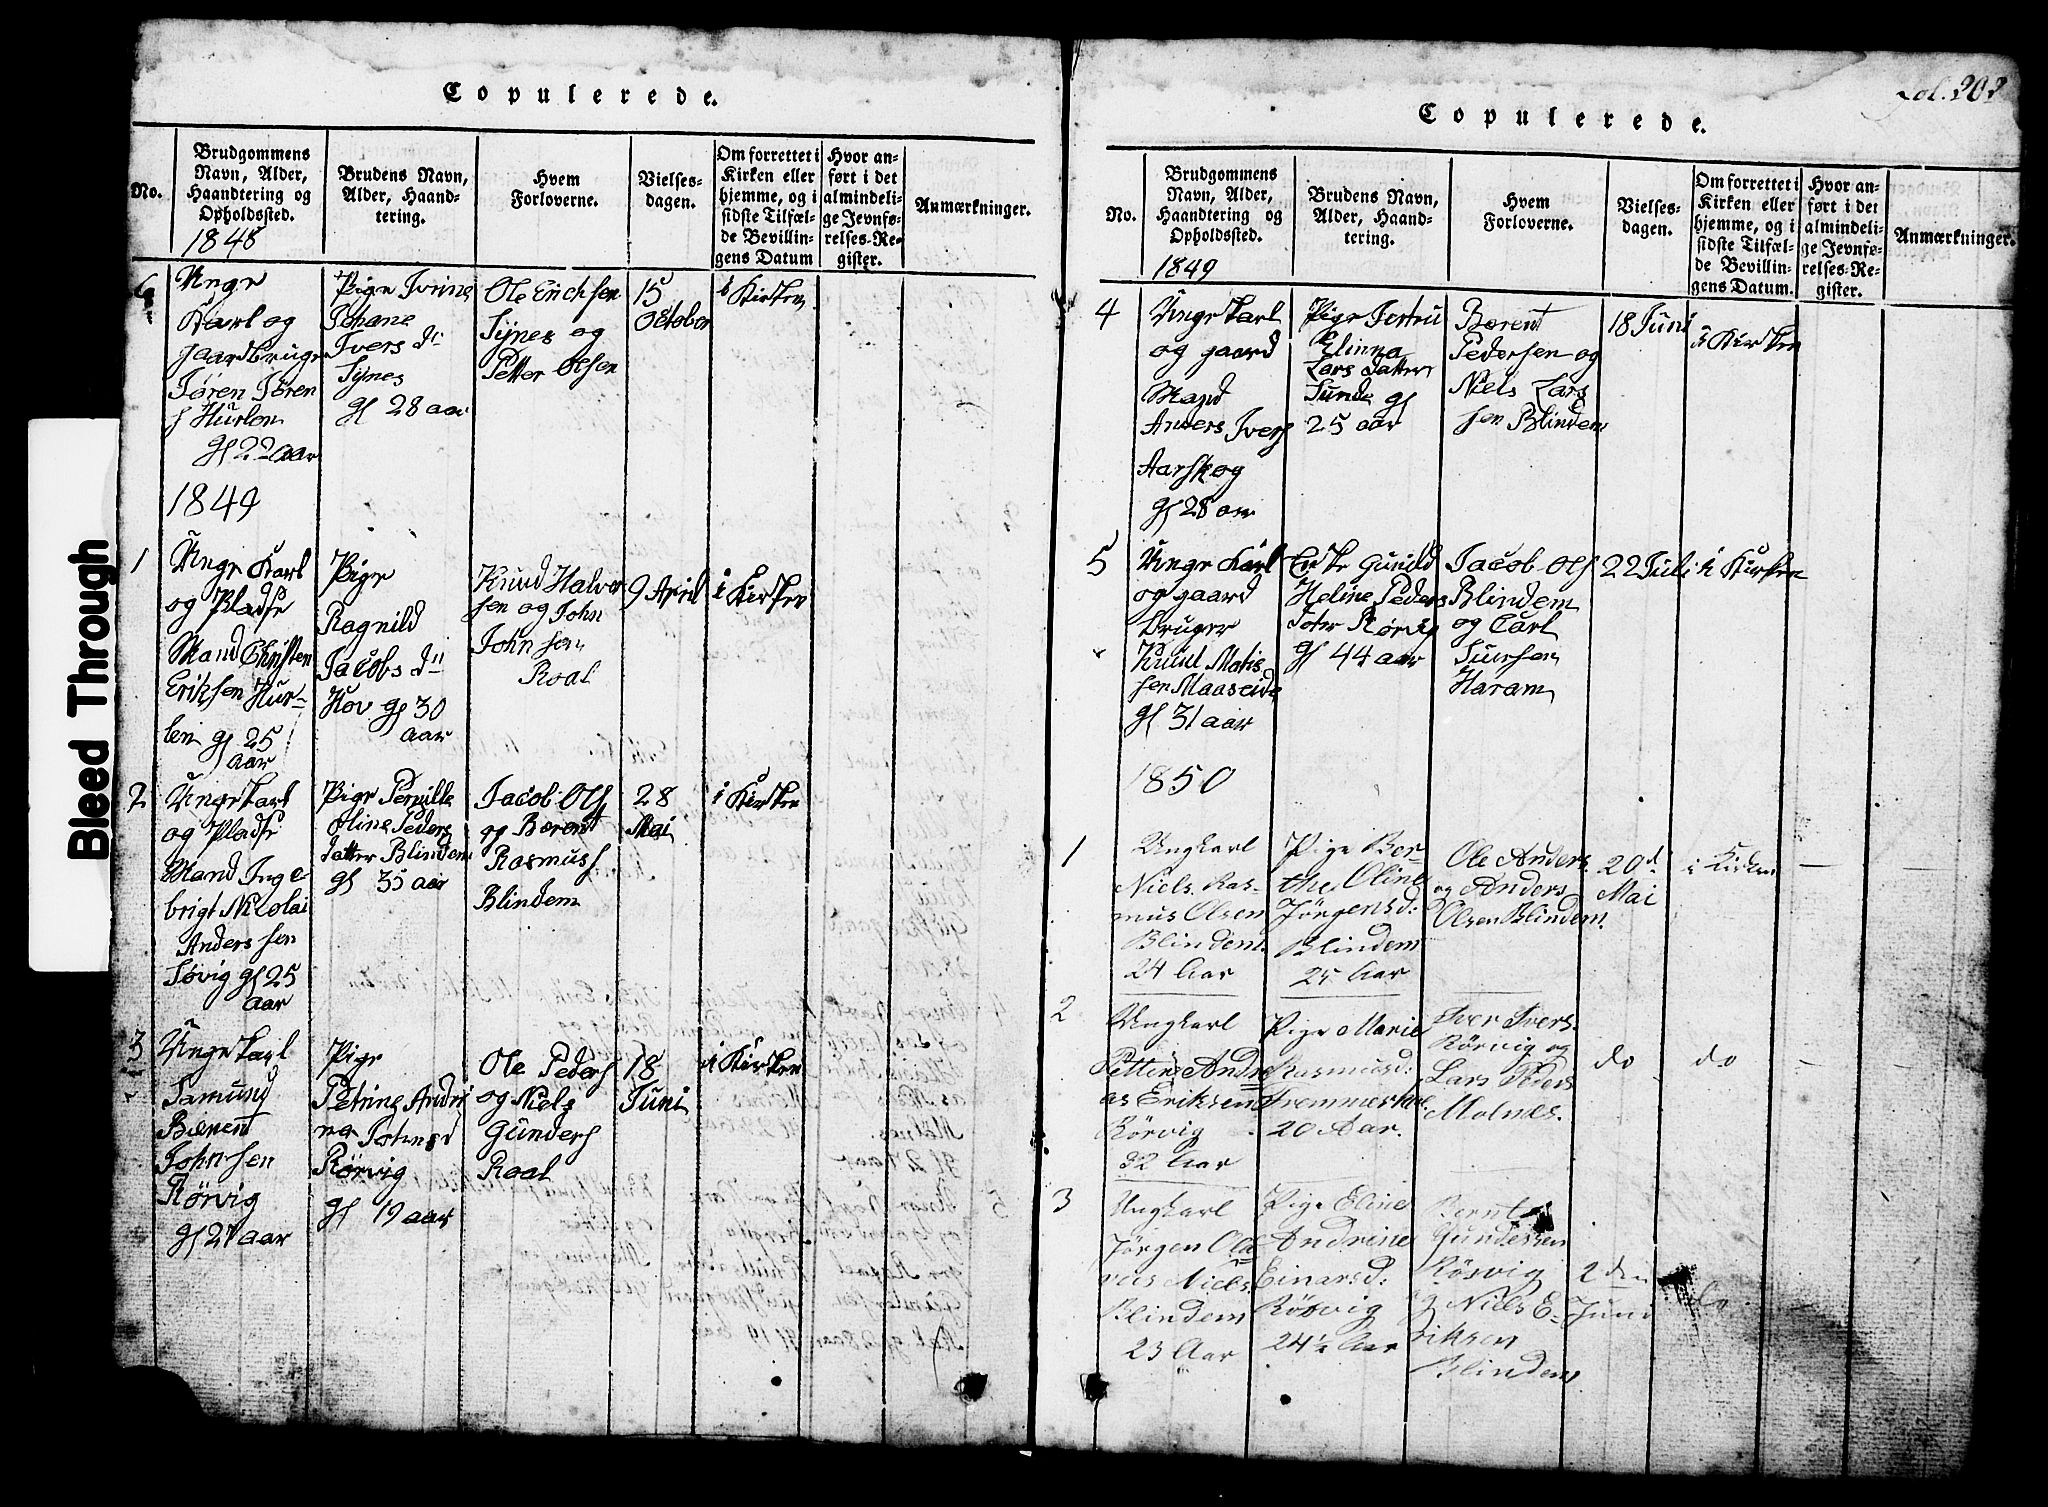 Copulerede.
No.
Brudgommens
Navn, Alder,
Haandtering og
Opholdssted.
1848
Brudens Navn,
Alder, Haand-
tering.
Hvem
Forloverne.
Vielses-
dagen.
Om forrettet i
Kirken eller
hjemme, og i
sidste Tilfæl-
de Bevillin-
gens Datum
Hvor an-
ført i det
almindeli-
ge Jevnfø-
relses-Re-
gister.
Anmærkninger.
6
Unge
Karl og
gaardbruger
Sören Sören
s Hurlen
gl 22 aar
Pige Ivrine
Johane
Ivers dn
Synes
gl 28 aar
Ole Erichsen
Synes og
Petter Olsen
15
October
i Kirken
1849
1
Unge Karl
og Pladse
Mand Christen
Eriksen Hur-
len gl 25
aar
Pige
Ragnild
Jacobs dn
Hov gl 30
aar
Knud Halvor
sen og John
John sen
Roal
9 April
i Kirken
2
Unge karl
og Pladse
Mand Inge
brigt Nicolai
Anders sen
Søvig gl 25
aar
Pige Pernille
oline Peders
datter Blindem
gl 35 aar
Jacob Ols
og Bærent
Rasmus s
Blindem
28
Mai
i Kirken
3
Unge karl
Samund
Bærent
John sen
Rörvig
gl 27 aar
Pige
Petrine Andri
na Johnsd
Rörvig
gl 19 aar
Ole Peders
og Niels
Gunders
Roal
18
Juni
i Kirken
Fol. 202
Copulerede.
No.
Brudgommens
Navn, Alder,
Haandtering og
Opholdssted.
1849
Brudens Navn,
Alder, Haand-
tering.
Hvem
Forloverne.
Vielses-
dagen.
Om forrettet i
Kirken eller
hjemme, og i
sidste Tilfæl-
de Bevillin-
gens Datum.
Hvor an-
ført i det
almindeli-
ge Jevnfø-
relses-Re-
gister.
Anmærkninger.
4
Unge karl
og gaard
Mand
Anders Ivers
Aarskog
gl 28 aar
Pige Jertru
Elinna
Lars datter
Sunde gl
25 aar
Bærent
Pedersen og
Niels Lars
sen Blindem
18 Juni
i Kirken
5
Unge Karl
og gaard
bruger
Knud Matis
sen Maaseide
gl 31 aar
Enke Gunild
Heline Peders
doter Rørvig
gl 44 aar
Jacob Ols
Blindem
og Carl
Siversen
Haram
22 Juli
i Kirken
1850
1
Ungkarl
Niels Ras-
mus Olsen
Blindem.
24 Aar
Pige Ber-
the Oline
Jörgensd:
Blindem
25 Aar
Ole Anders.
og Anders
Olsen Blindem.
20d
Mai
i Kirken
2
Ungkarl
Petter Andre
as Eriksen
Rörvig
32 Aar
Pige Marie
Rasmusd:
Fremmerhol
20 Aar.
Iver Ivers.
Rörvig og
Lars Peders
Molnes.
do
do
3
Ungkarl
Jörgen Ola
rus Niels.
Blindem
23 Aar
Pige Eline
Andrine
Einarsd:
Rörvig
24½ Aar
Bernt
Gundersen
Rörvig
og Niels E-
riksen
Blindem
2den
Juni
do
Bleed Through